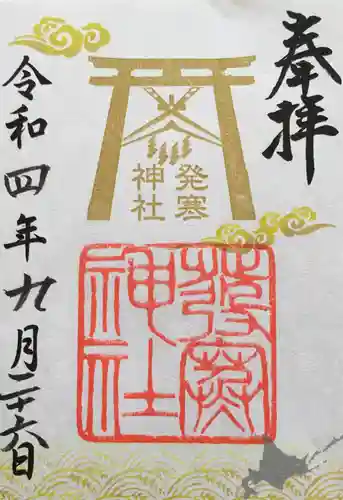 奉拝
発寒
神社
発寒
神社
令和四年九月二十六日